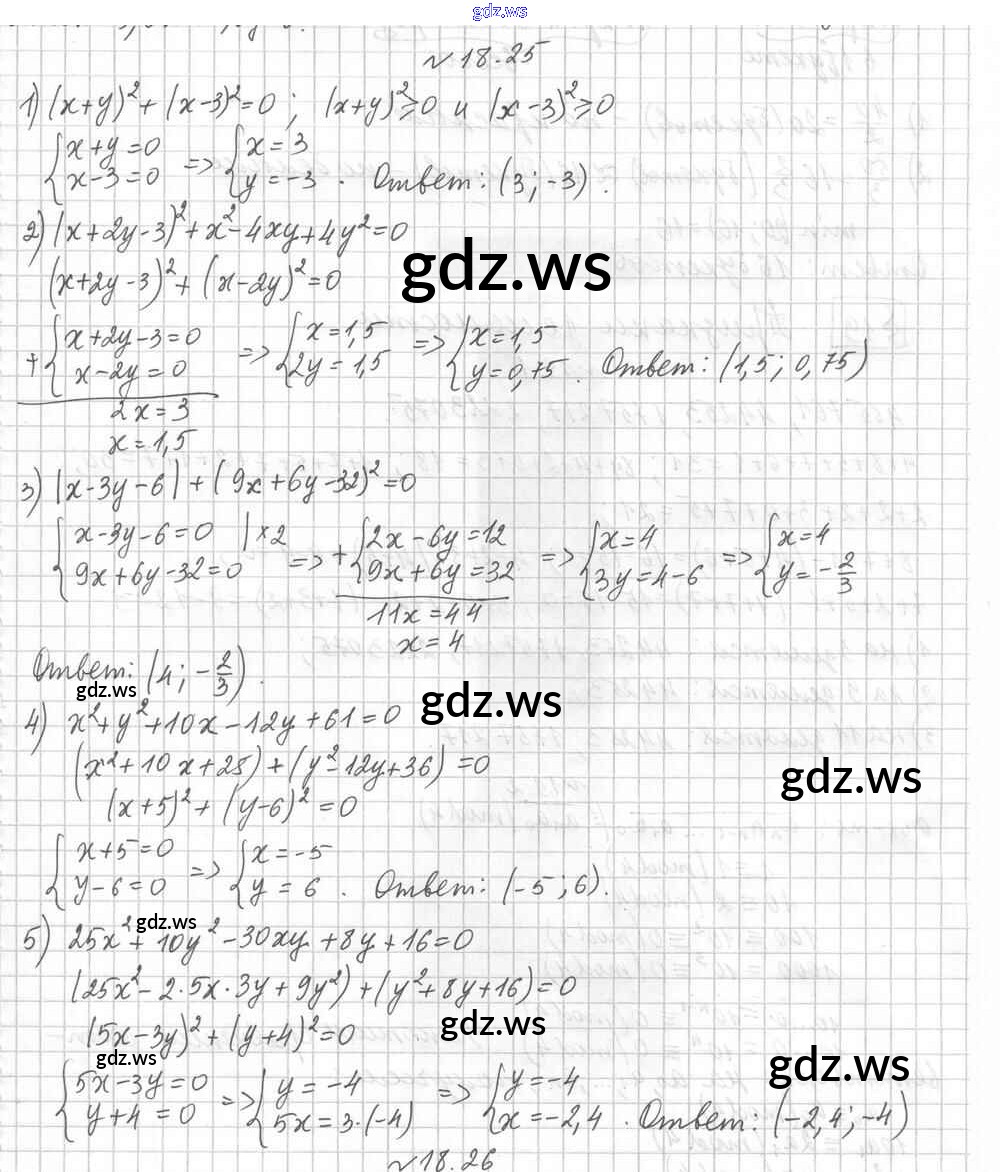 gdz.ws
№18.25
1) (x+y)²+(x-3)²=0; (x+y)²≥0 и (x-3)²≥0
{x+y=0 => {x=3
x-3=0 y=-3. Ответ: (3;-3).
2) (x+2y-3)²+x²-4xy+4y²=0
gdz.ws
(x+2y-3)²+(x-2y)²=0
+{x+2y-3=0 => {x=1,5 => {x=1,5
x-2y=0 2y=1,5 y=0,75. Ответ: (1,5; 0,75)
2x=3
x=1,5
3) |x-3y-6|+(9x+6y-32)²=0
{x-3y-6=0 |×2 => +{2x-6y=12 => {x=4 => {x=4
9x+6y-32=0 9x+6y=32 3y=4-6 y=-2/3
11x=44
x=4
Ответ: (4; -2/3).
gdz.ws
gdz.ws
4) x²+y²+10x-12y+61=0
(x²+10x+25)+(y²-12y+36)=0
gdz.ws
(x+5)²+(y-6)²=0
{x+5=0 => {x=-5
y-6=0 y=6. Ответ: (-5;6).
gdz.ws
5) 25x²+10y²-30xy+8y+16=0
(25x²-2·5x·3y+9y²)+(y²+8y+16)=0
gdz.ws
(5x-3y)²+(y+4)²=0
gdz.ws
gdz.ws
{5x-3y=0 => {y=-4 => {y=-4
y+4=0 5x=3·(-4) x=-2,4. Ответ: (-2,4;-4)
№18.26